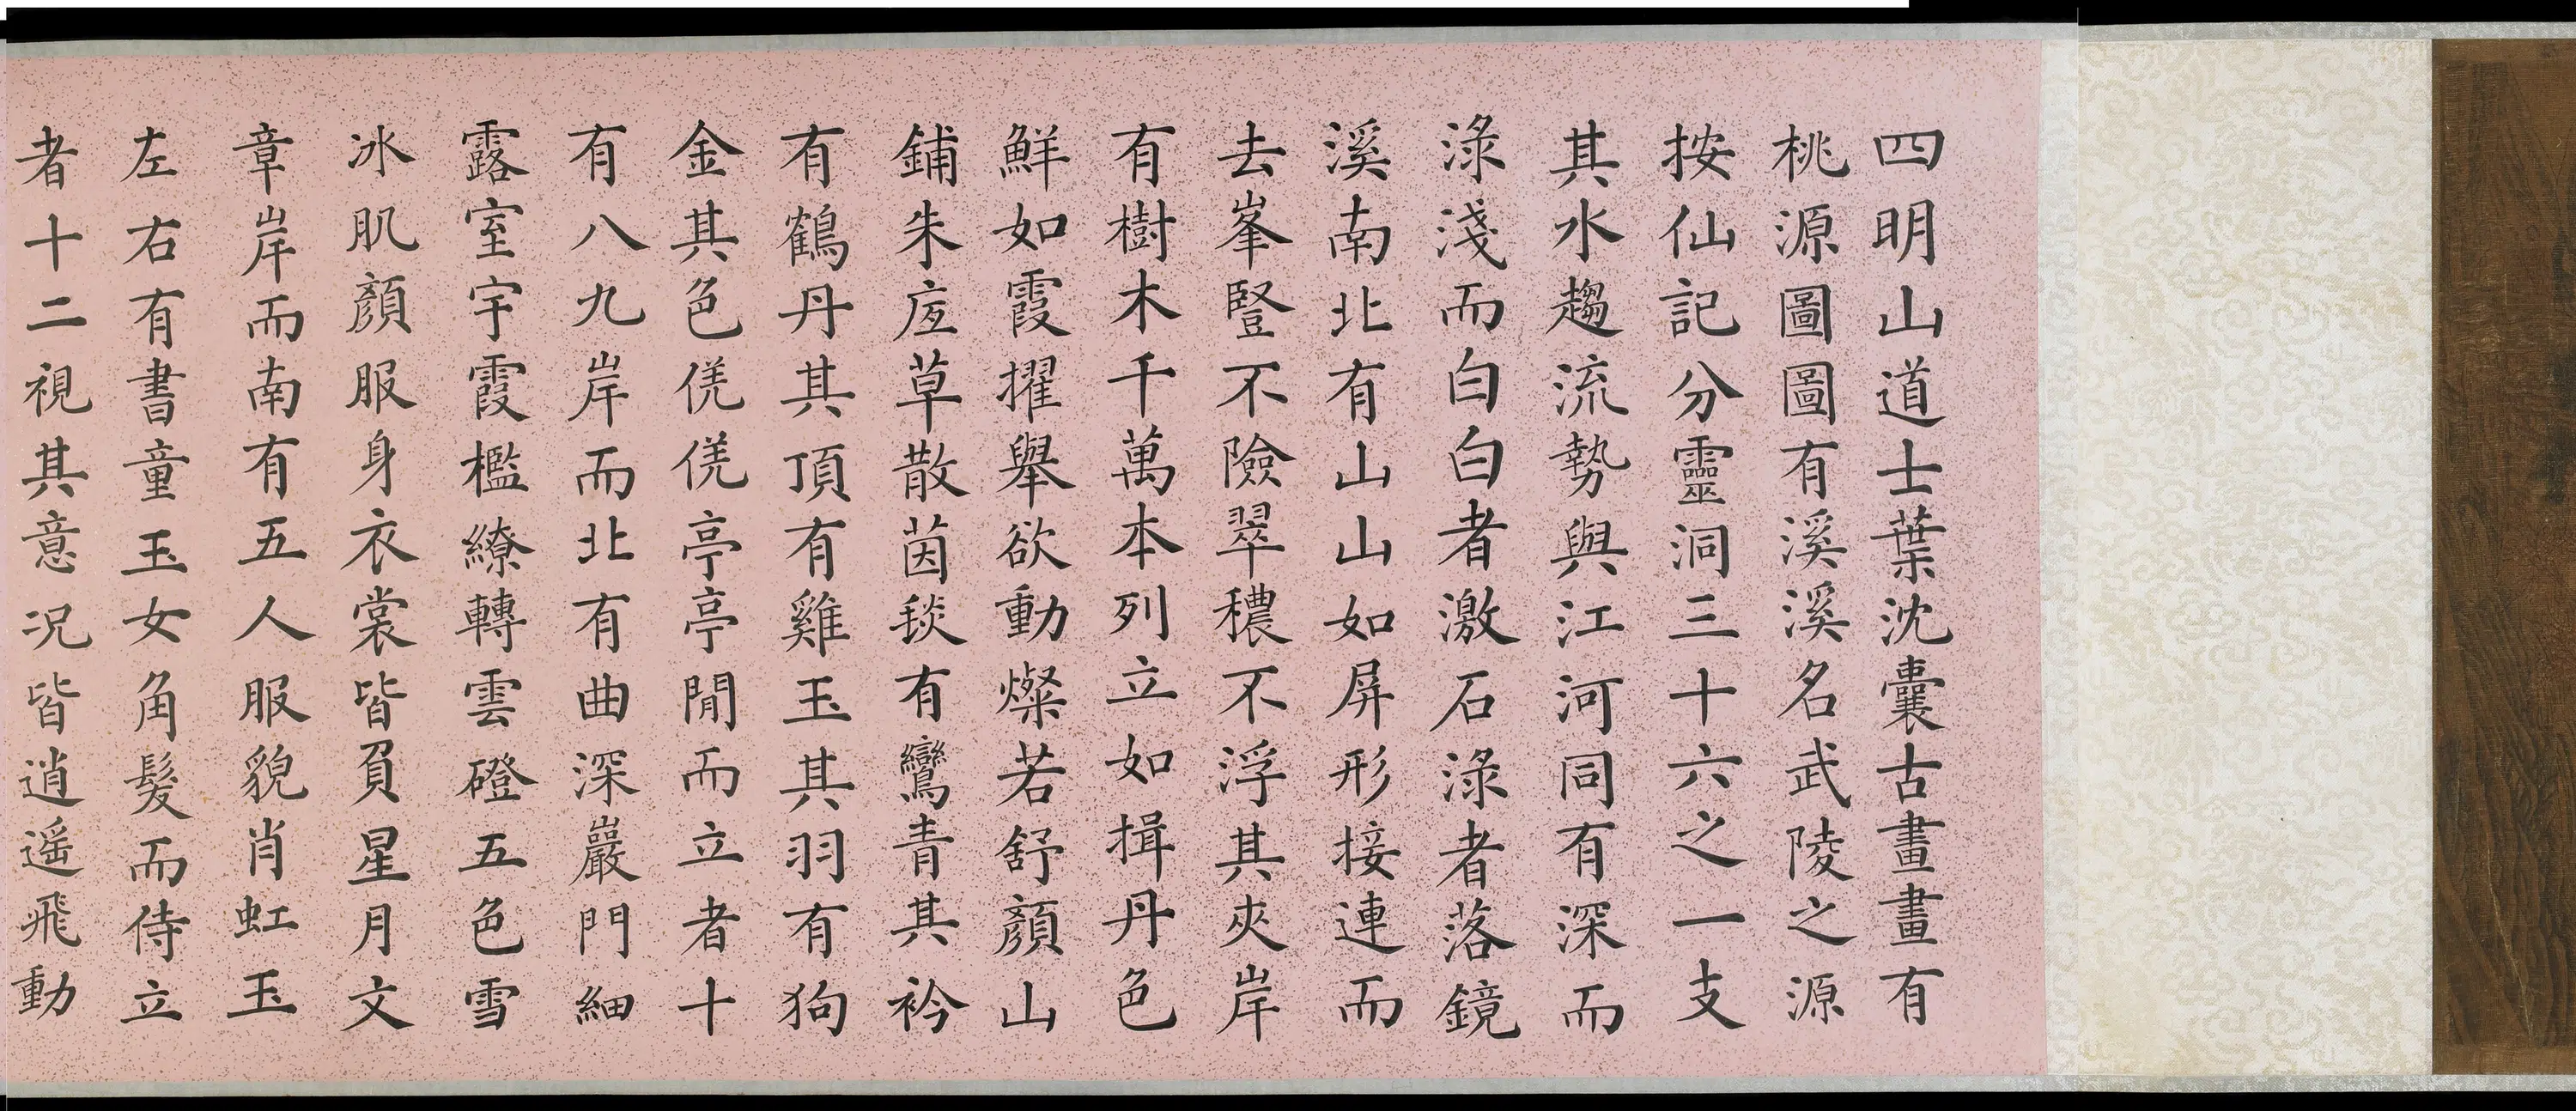 四明山道士葉沈囊古畫畫有
桃源圖圖有溪溪名武陵之源
按仙記分靈洞三十六之一支
其水趨流勢與江河同有深而
淥淺而白白者激石淥者落鏡
溪南北有山山如屏形接連而
去峯豎不險翠穠不浮其夾岸
有樹木千萬本列立如揖丹色
鮮如霞擢舉欲動燦若舒顏山
鋪朱底草散茵毯有鸞青其衿
有鶴丹其頂有雞玉其羽有狗
金其色傂傂亭亭閒而立者十
有八九岸而北有曲深巖門細
露室宇霞檻繚轉雲磴五色雪
冰肌顏服身衣裳皆負星月文
章岸而南有五人服貌肖虹玉
左右有書童玉女角髮而侍立
者十二視其意況皆逍遥飛動